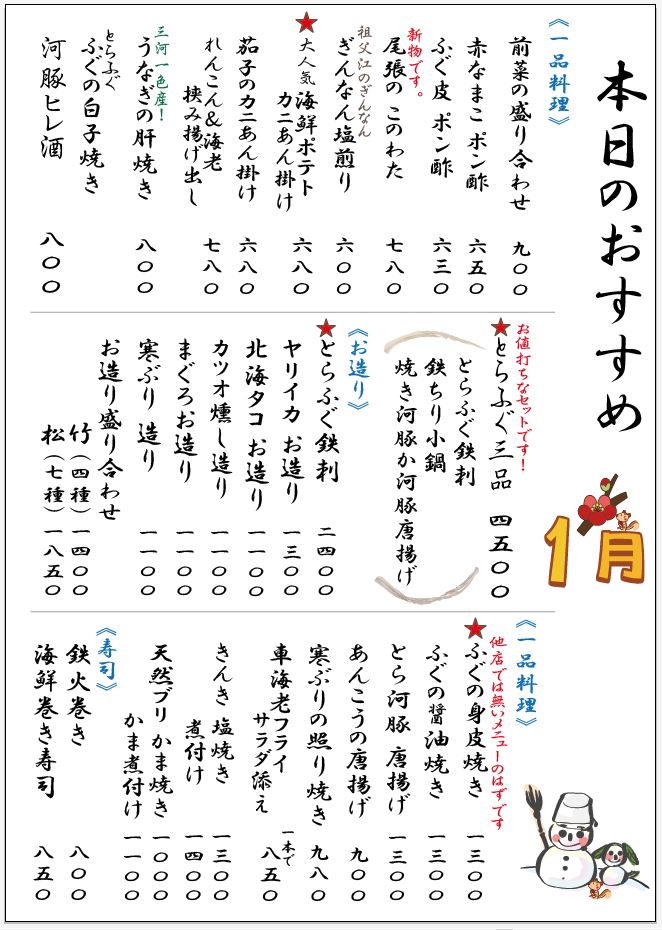 本日のおすすめ
1月
《一品料理》
前菜の盛り合わせ 九〇〇
赤なまこ ポン酢 六五〇
ふぐ皮 ポン酢 六三〇
新物です。
尾張の このわた 七八〇
祖父江のぎんなん
ぎんなん塩煎り 六〇〇
★大人気 海鮮ポテト
カニあん掛け 六八〇
茄子のカニあん掛け 六八〇
れんこん&海老
挟み揚げ出し 七八〇
三河一色産!
うなぎの肝焼き 八〇〇
とらふぐ
ふぐの白子焼き
河豚ヒレ酒 八〇〇
お値打ちなセットです!
★とらふぐ三品 四五〇〇
とらふぐ鉄刺
鉄ちり小鍋
焼き河豚か河豚唐揚げ
《お造り》
★とらふぐ鉄刺 二四〇〇
ヤリイカ お造り 一三〇〇
北海タコ お造り 一一〇〇
カツオ燻し造り 一一〇〇
まぐろお造り 一一〇〇
寒ぶり 造り 一一〇〇
お造り盛り合わせ
竹(四種)一四〇〇
松(七種)一八五〇
《一品料理》
他店では無いメニューのはずです
★ふぐの身皮焼き 一三〇〇
ふぐの醤油焼き 一三〇〇
とら河豚 唐揚げ 一三〇〇
あんこうの唐揚げ 九〇〇
寒ぶりの照り焼き 九八〇
車海老フライ
サラダ添え 一本で 八五〇
きんき 塩焼き 一三〇〇
煮付け 一四〇〇
天然ブリ かま焼き 一〇〇〇
かま煮付け 一一〇〇
《寿司》
鉄火巻き 八〇〇
海鮮巻き寿司 八五〇